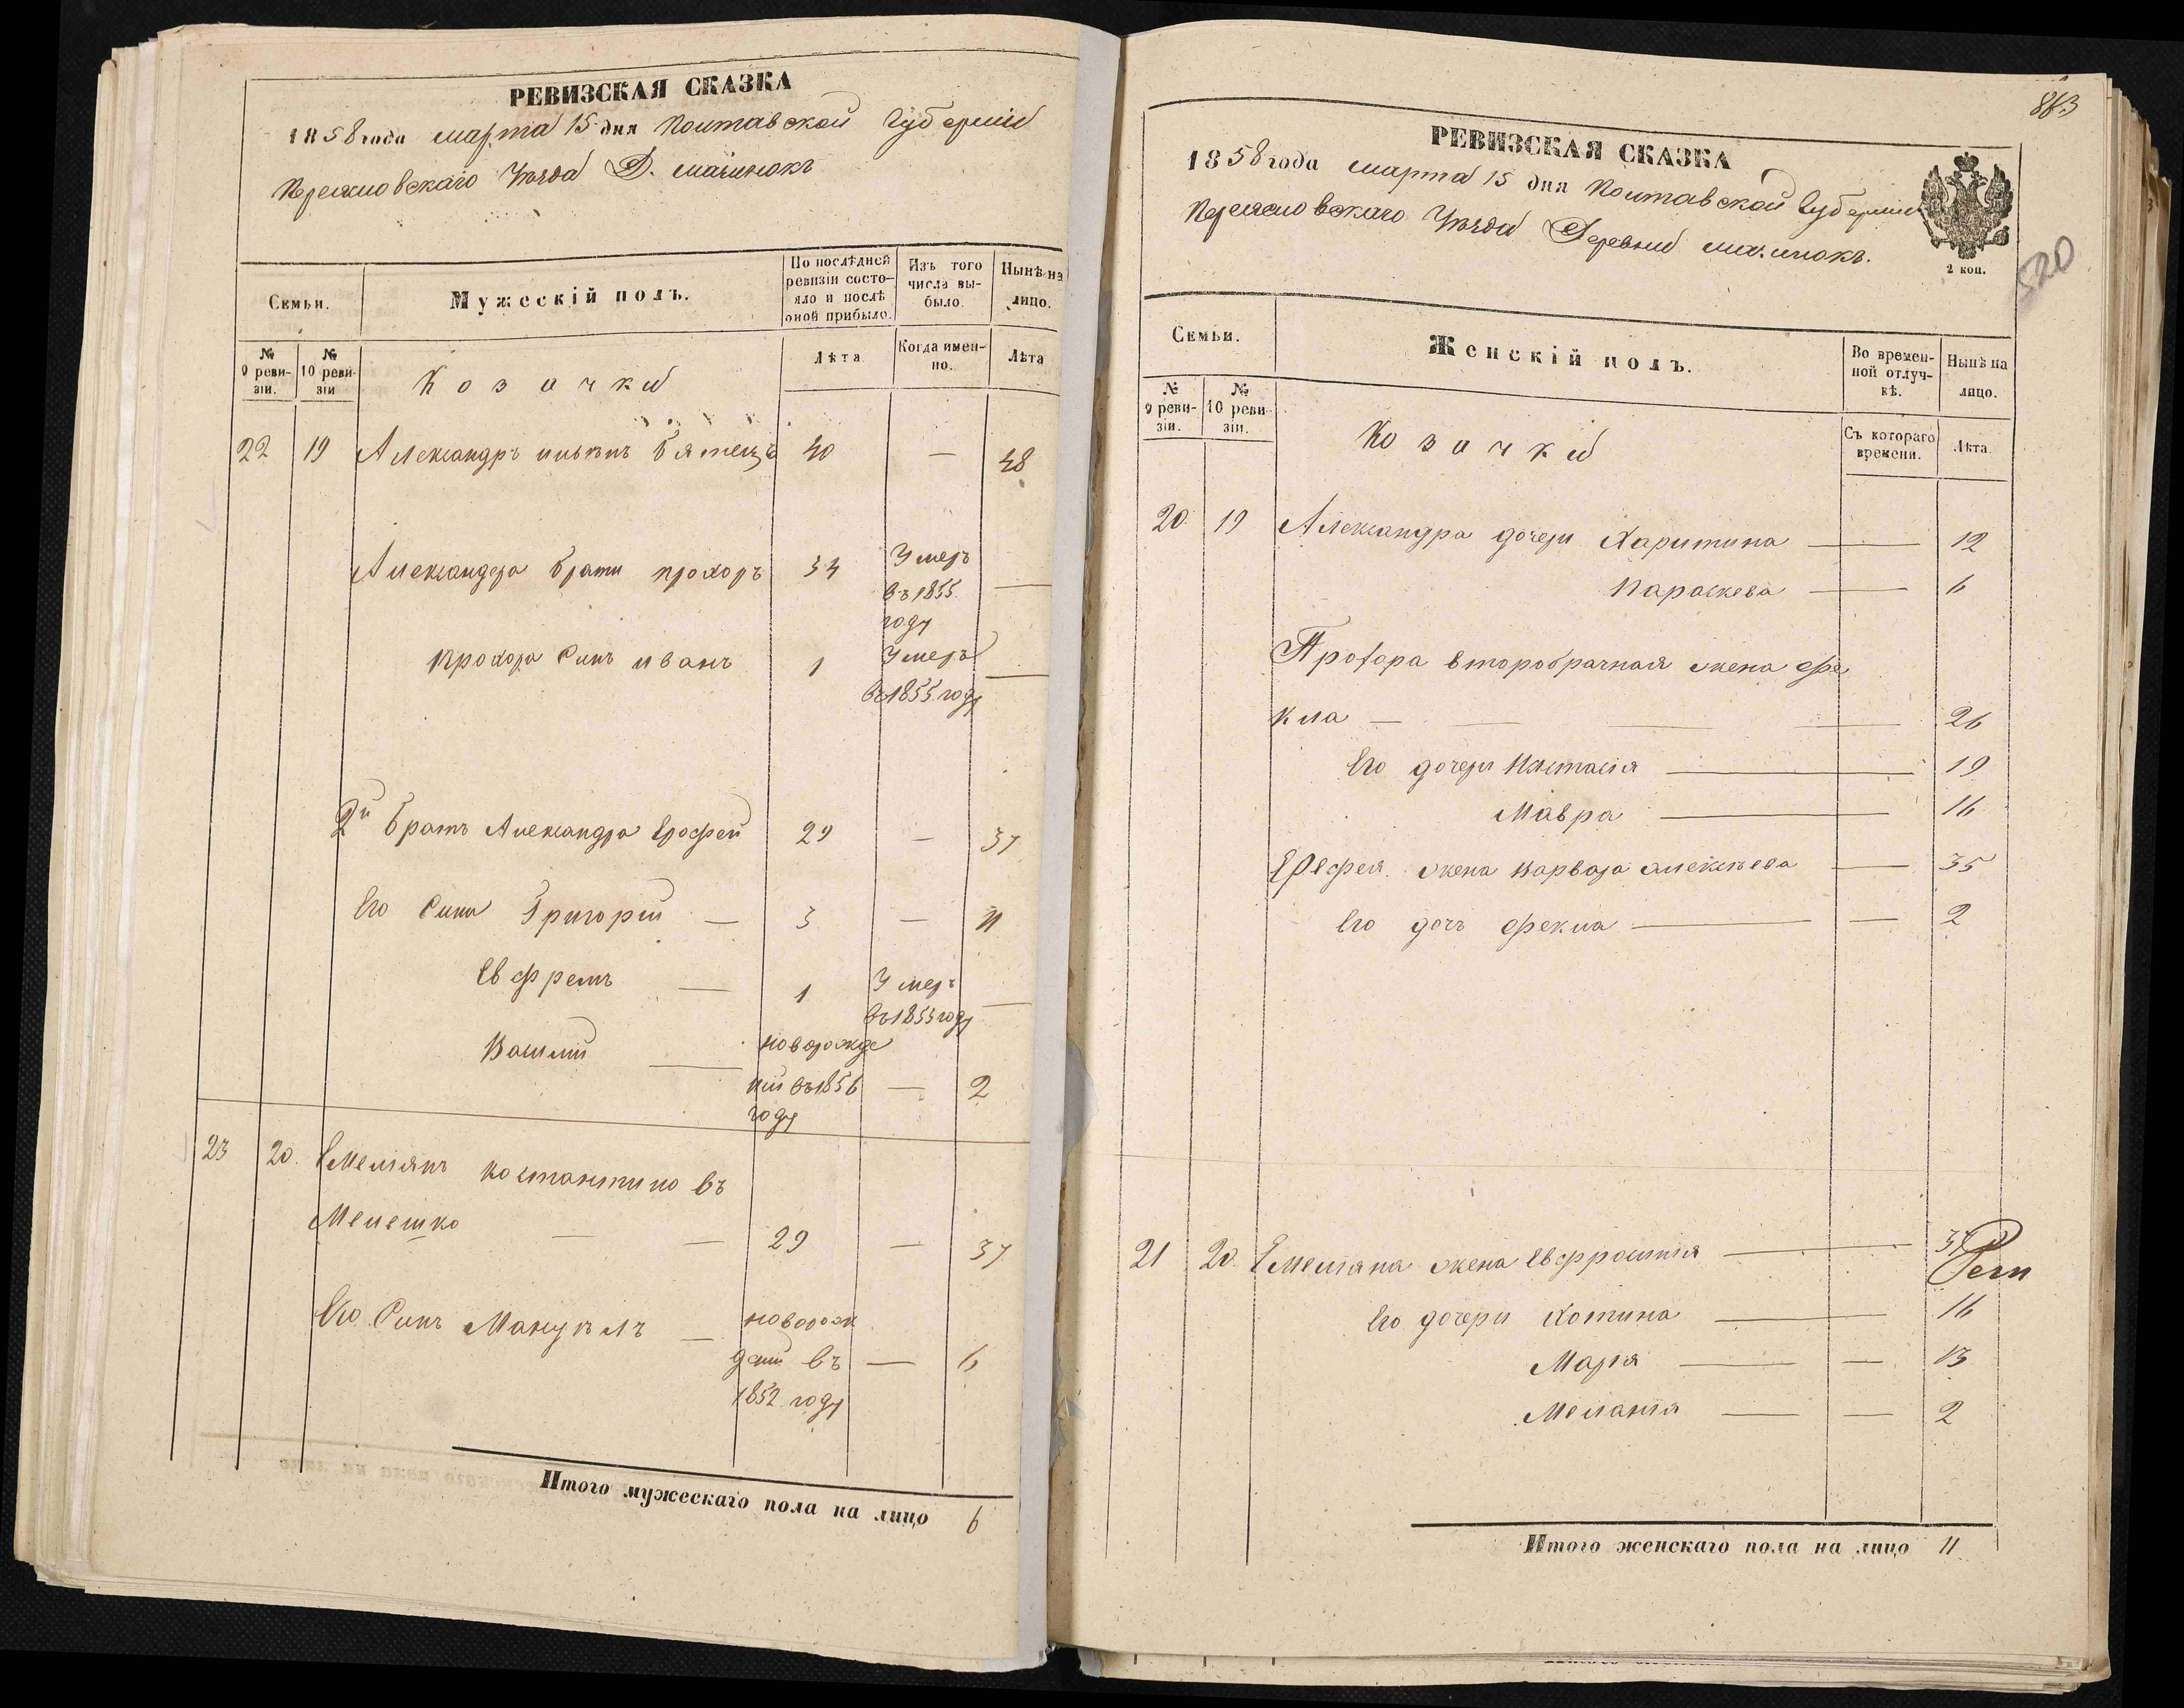 РЕВИЗСКАЯ СКАЗКА
1858 года марта 15 дня Полтавской Губерніи
Переяславскаго Уѣзда Д.
Семьи.
Мужескій полъ.
По послѣдней ревизіи состояло и послѣ оной прибыло.
Изъ того числа выбыло.
Нынѣ на лицо.
№ 9 ревизіи.
№ 10 ревизіи
Козачки
Лѣта.
Когда именно.
Лѣта
22 19 Александръ 40 — 48
Александра братъ Прохоръ 34 Умеръ въ 1855 году —
Прохора Синъ Иванъ 1 Умеръ въ 1855 году —
2й братъ Александра Ерофей 29 — 37
Его Сини Григорій — 3 — 11
Евфремъ — 1 Умеръ въ 1853 году —
Василій — новорожденій въ 1856 году — 2
23 20. Емеліянъ Костантиновъ
Мелешко — — 29 — 37
Его Синъ Мануилъ — новорожденій въ 1852 году — 6
Итого мужескаго пола на лицо 6
883
520
РЕВИЗСКАЯ СКАЗКА
1858 года марта 15 дня Полтавской Губерніи
Переяславскаго Уѣзда Деревни
2 коп.
Семьи.
Женскій полъ.
Во временной отлучкѣ.
Нынѣ на лицо.
№ 9 ревизіи.
№ 10 ревизіи.
Козачки
Съ котораго времени.
Лѣта.
20. 19 Александра дочери Харитина — 12
Параскева — 6
Прохора второбрачная жена Фе
кла — — — — 26
Его дочери Настасія — 19
Мавра — 16
Ерофея жена Варвара Алексѣева — 35
Его дочь Фекла — — 2
21 20. Емеліяна жена Евфросинія — 37
Его дочери Хотина — 16
Марія — — 13
Меланія — — 2
Итого женскаго пола на лицо 11